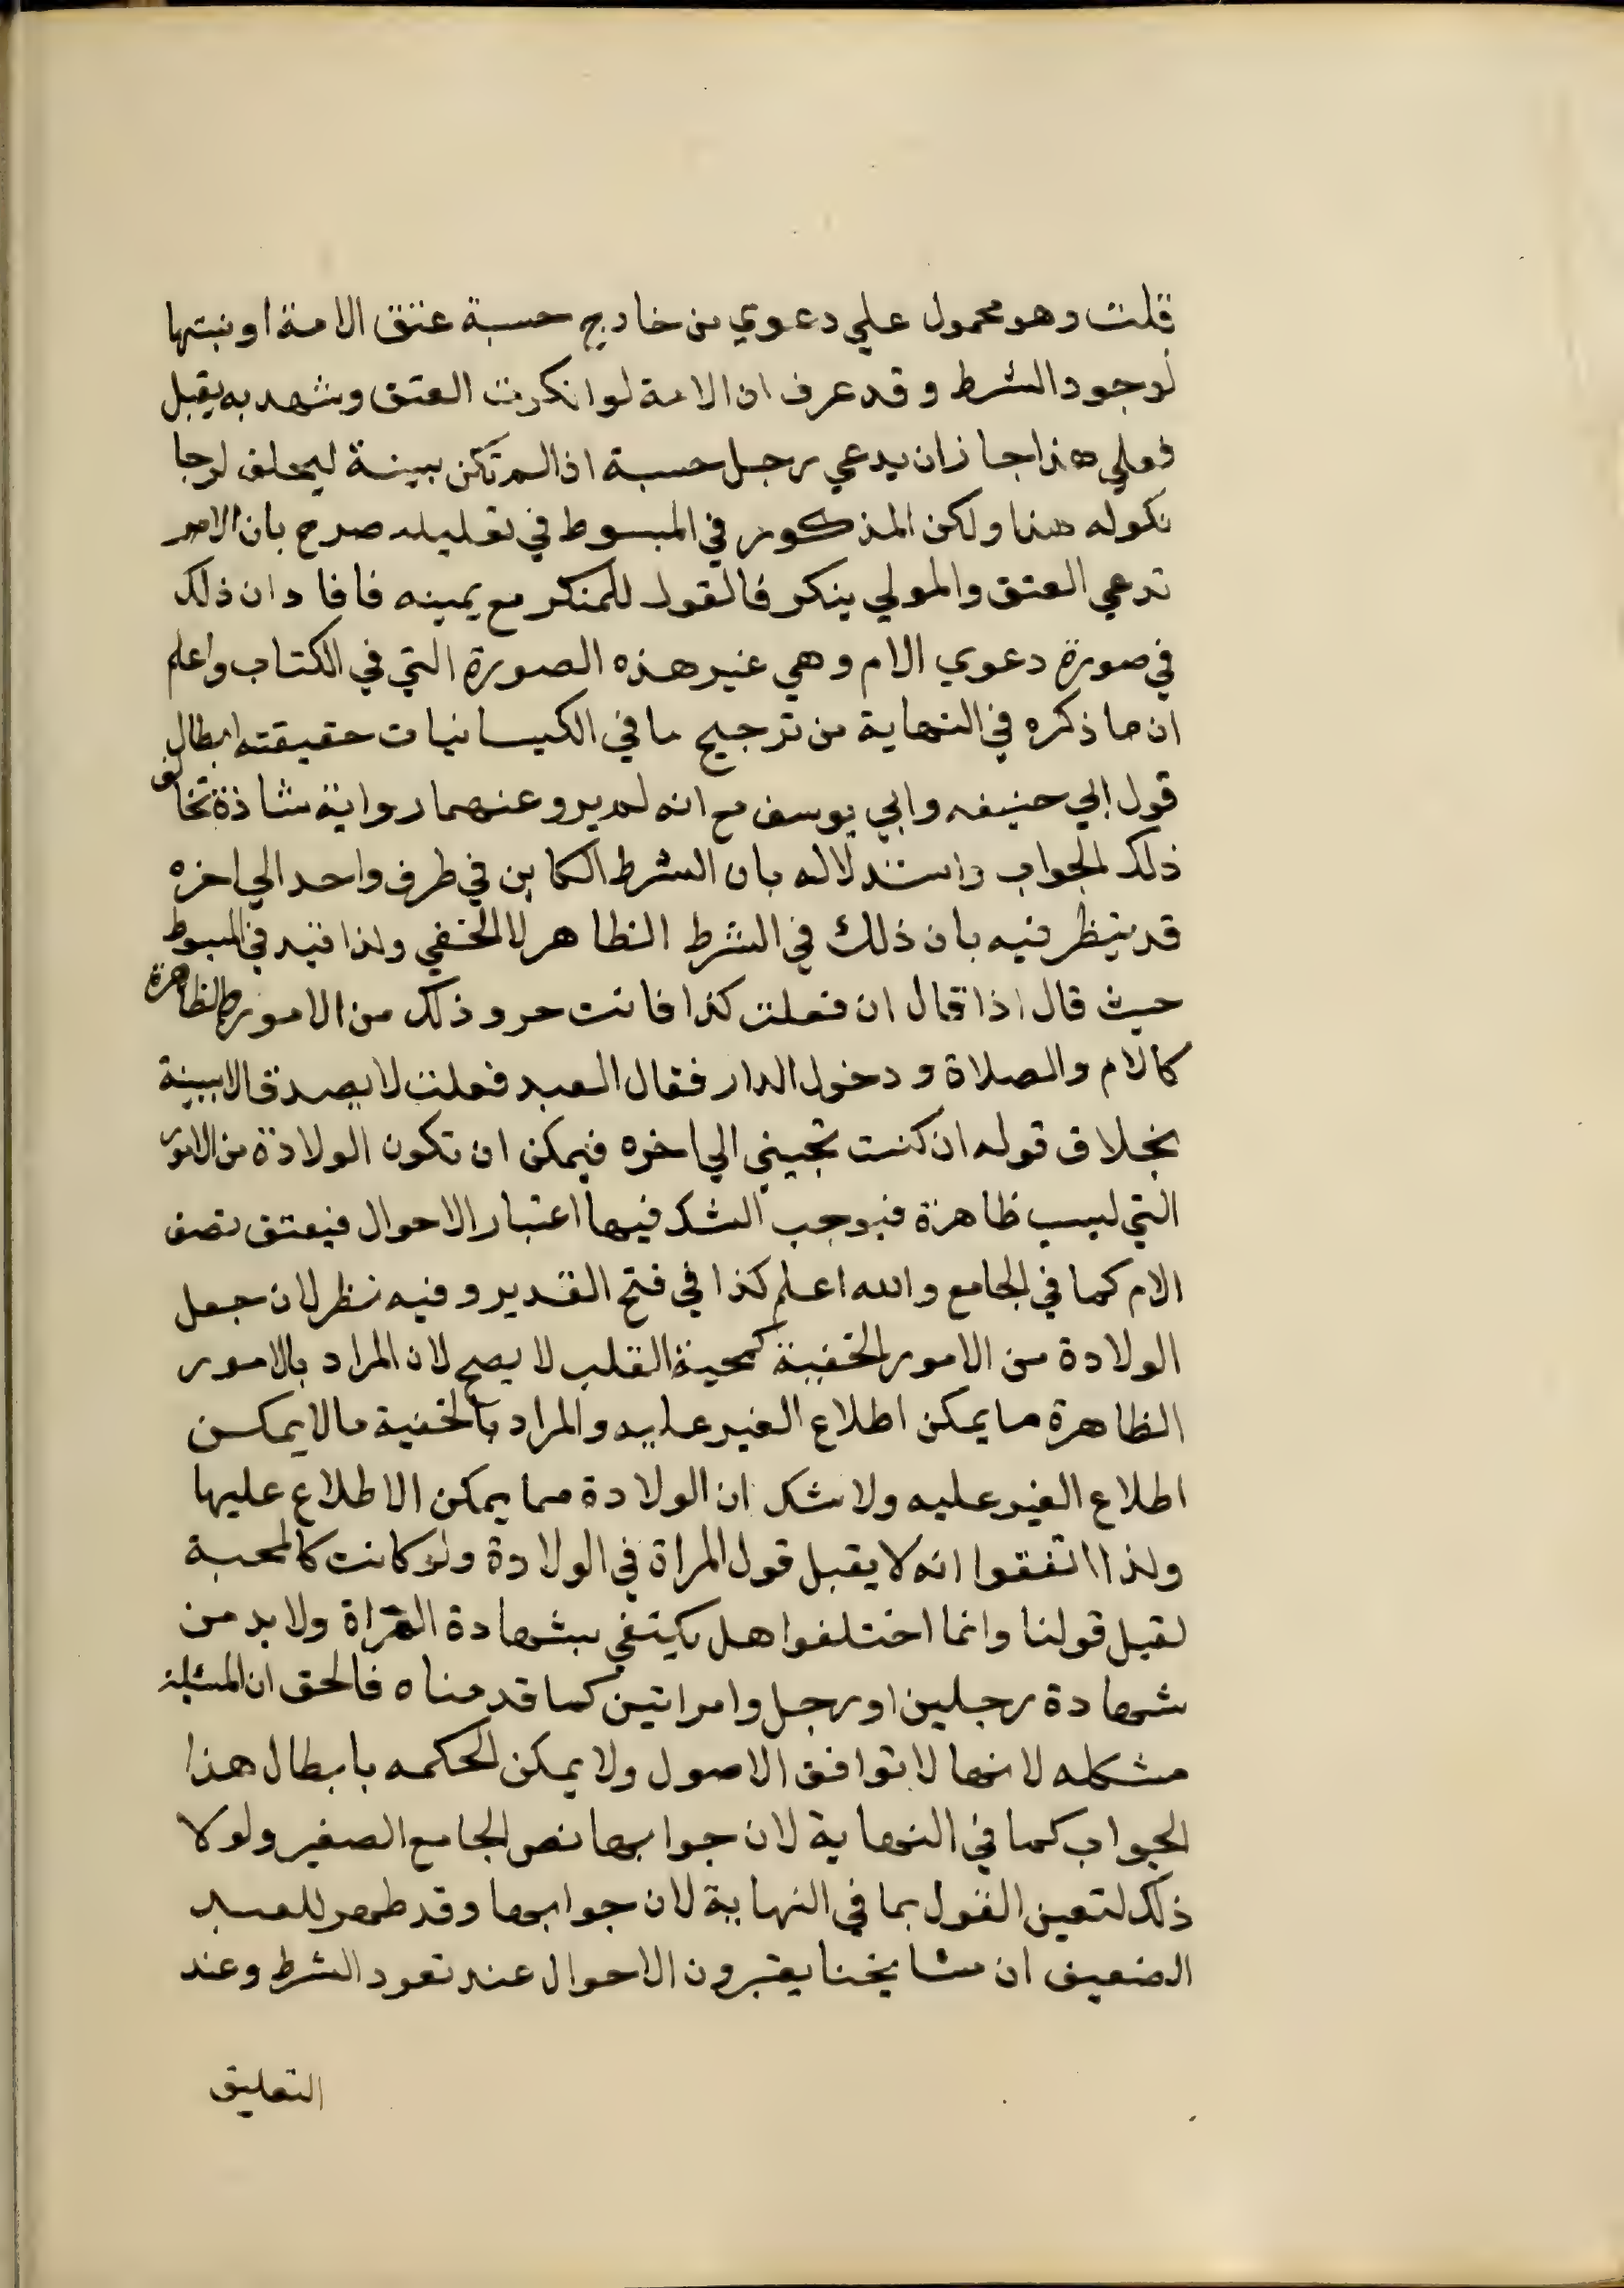 قلت وهو محمول علي دعوي من خارج حسبة عتق الامة او بنتها
لوجود الشرط وقد عرف ان الامة لو انكرت العتق وشهد به يقبل
فعلي هذا جاز ان يدعي رجل حسبة اذا لم تكن بينة ليحلف لرجا
نكوله هنا ولكن المذكور في المبسوط في تعليله صرح بان الام
تدعي العتق والمولي ينكر فالقول للمنكر مع يمينه فافاد ان ذلك
في صورة دعوي الام وهي غير هذه الصورة التي في الكتاب واعلم
ان ما ذكره في النهاية من ترجيح ما في الكيسانيات حقيقته ابطال
قول ابي حنيفه وابي يوسف مع انه لم يرو عنهما رواية شاذة تخالف
ذلك الجواب واستدلاله بان الشرط الكاين في طرف واحد الي اخره
قد ينظر فيه بان ذلك في الشرط الظاهر لا الخفي ولذا قيد في المبسوط
حيث قال اذا قال ان فعلت كذا فانت حر وذلك من الامور الظاهرة
كالام والصلاة ودخول الدار فقال العبد فعلت لا يصدق الا ببينة
بخلاف قوله ان كنت تحبيني الي اخره فيمكن ان تكون الولادة من الامور
التي ليست ظاهرة فيوجب الشك فيها اعتبار الاحوال فيعتق نصف
الام كما في الجامع والله اعلم كذا في فتح القدير وفيه نظر لان جعل
الولادة من الامور الخفية كمحبة القلب لا يصح لان المراد بالامور
الظاهرة ما يمكن اطلاع الغير عليه والمراد بالخفية ما لا يمكن
اطلاع الغير عليه ولا شك ان الولادة مما يمكن الاطلاع عليها
ولذا اتفقوا انه لا يقبل قول المراة في الولادة ولو كانت كالمحبة
لقبل قولنا وانما اختلفوا هل يكتفي بشهادة المراة ولا بد من
شهادة رجلين او رجل وامراتين كما قدمناه فالحق ان المسئلة
مشكله لانها لا توافق الاصول ولا يمكن الحكمه بابطال هذا
الجواب كما في النهاية لان جوابها نص الجامع الصغير ولولا
ذلك لتعين القول بما في النهاية لان جوابها وقد ظهر للعبد
الضعيف ان مشايخنا يعتبرون الاحوال عند تعود الشرط وعند
التعليق